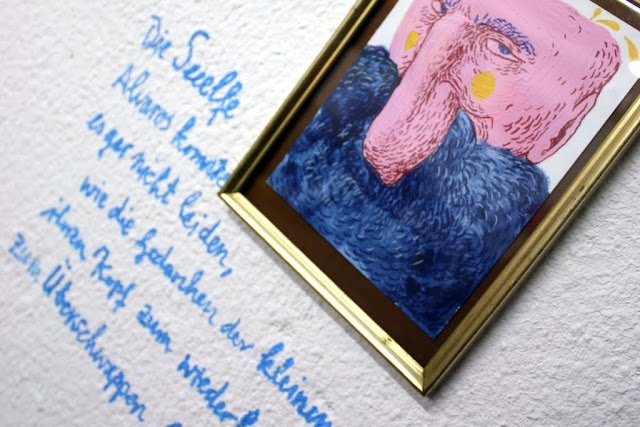 Die Suelfe
Alvaros konnte
es gar nicht leiden,
wie die Gedanken der kleinen
ihren Kopf zum
zum Überschwappen